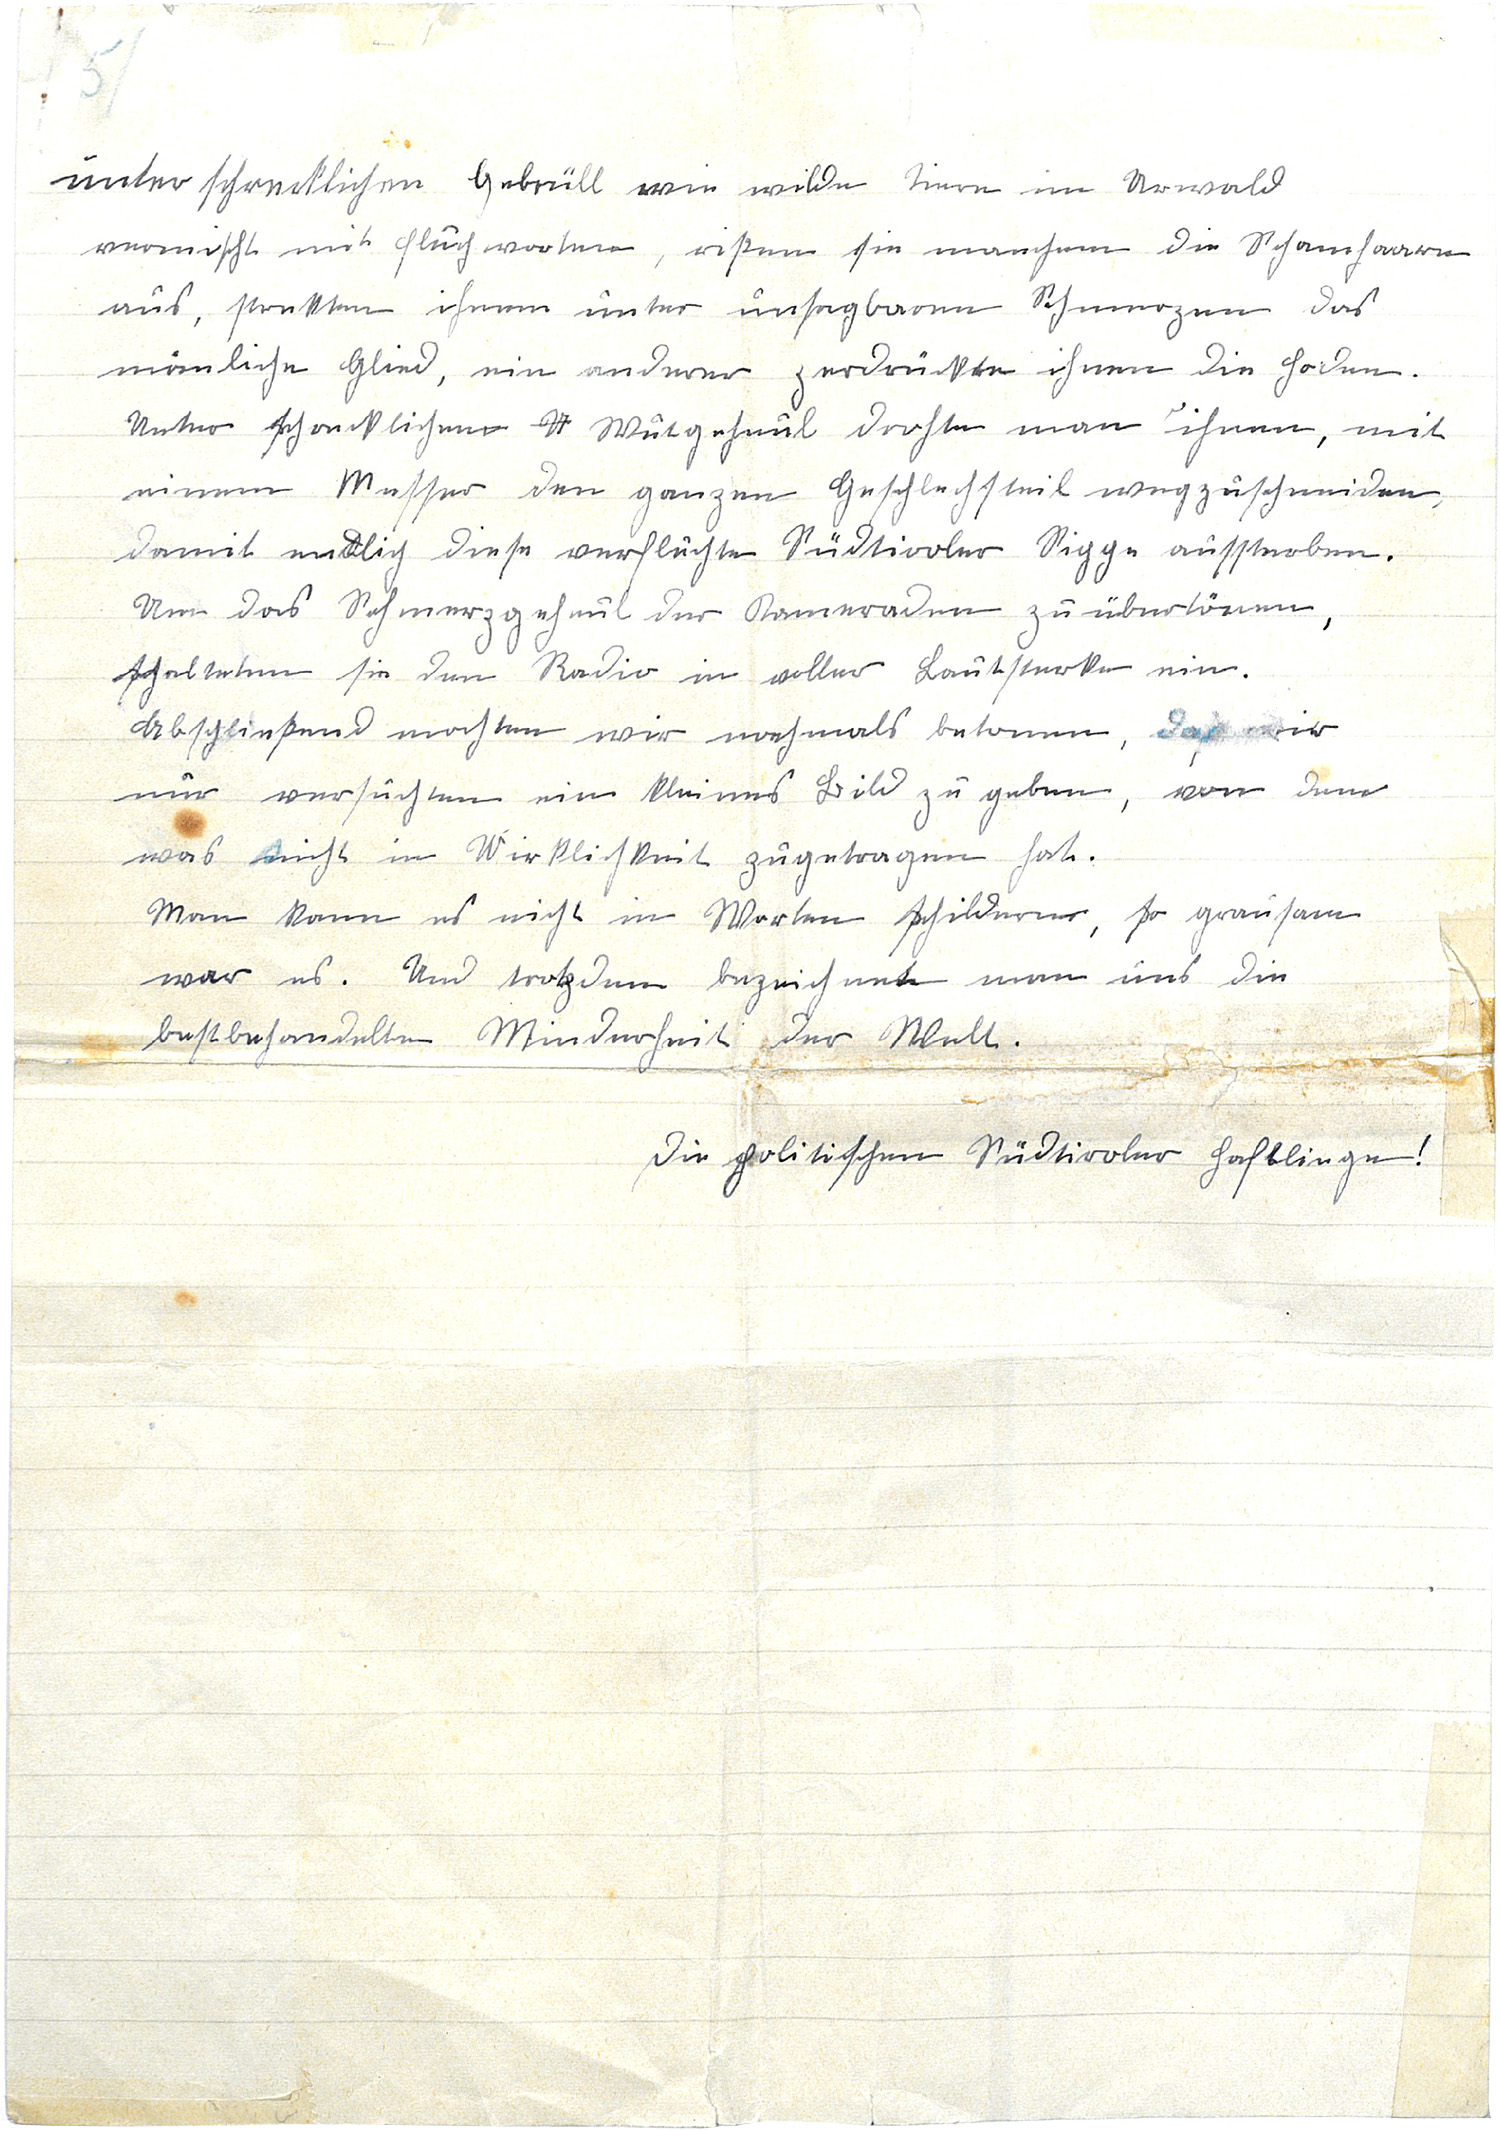 5/
unter schrecklichen Gebrüll wie wilde Tiere im Urwald
vermischt mit Fluchworten, rißen sie manchem die Schamhaare
aus, strekten ihnen unter unsagbaren Schmerzen das
mänliche Glied, ein anderer zerdrückte ihnen die Hoden.
Unter schrecklichen Wutgeheul drohte man ihnen, mit
einem Messer den ganzen Geschlechsteil wegzuschneiden,
damit endlich diese verfluchte Südtiroler Sigge aussterben.
Um das Schmerzgeheul der Kameraden zu übertönen,
schalteten sie den Radio in voller Lautsterke ein.
Abschließend mochten wir nochmals betonen, daß wir
nur versuchten ein kleines Bild zu geben, von dem
was sich in Wirklichkeit zugetragen hat.
Man kann es nicht in Worten schildern, so grausam
war es. Und trotzdem bezeichnet man uns die
bestbehandelte Minderheit der Welt.
Die politischen Südtiroler Haftlinge!